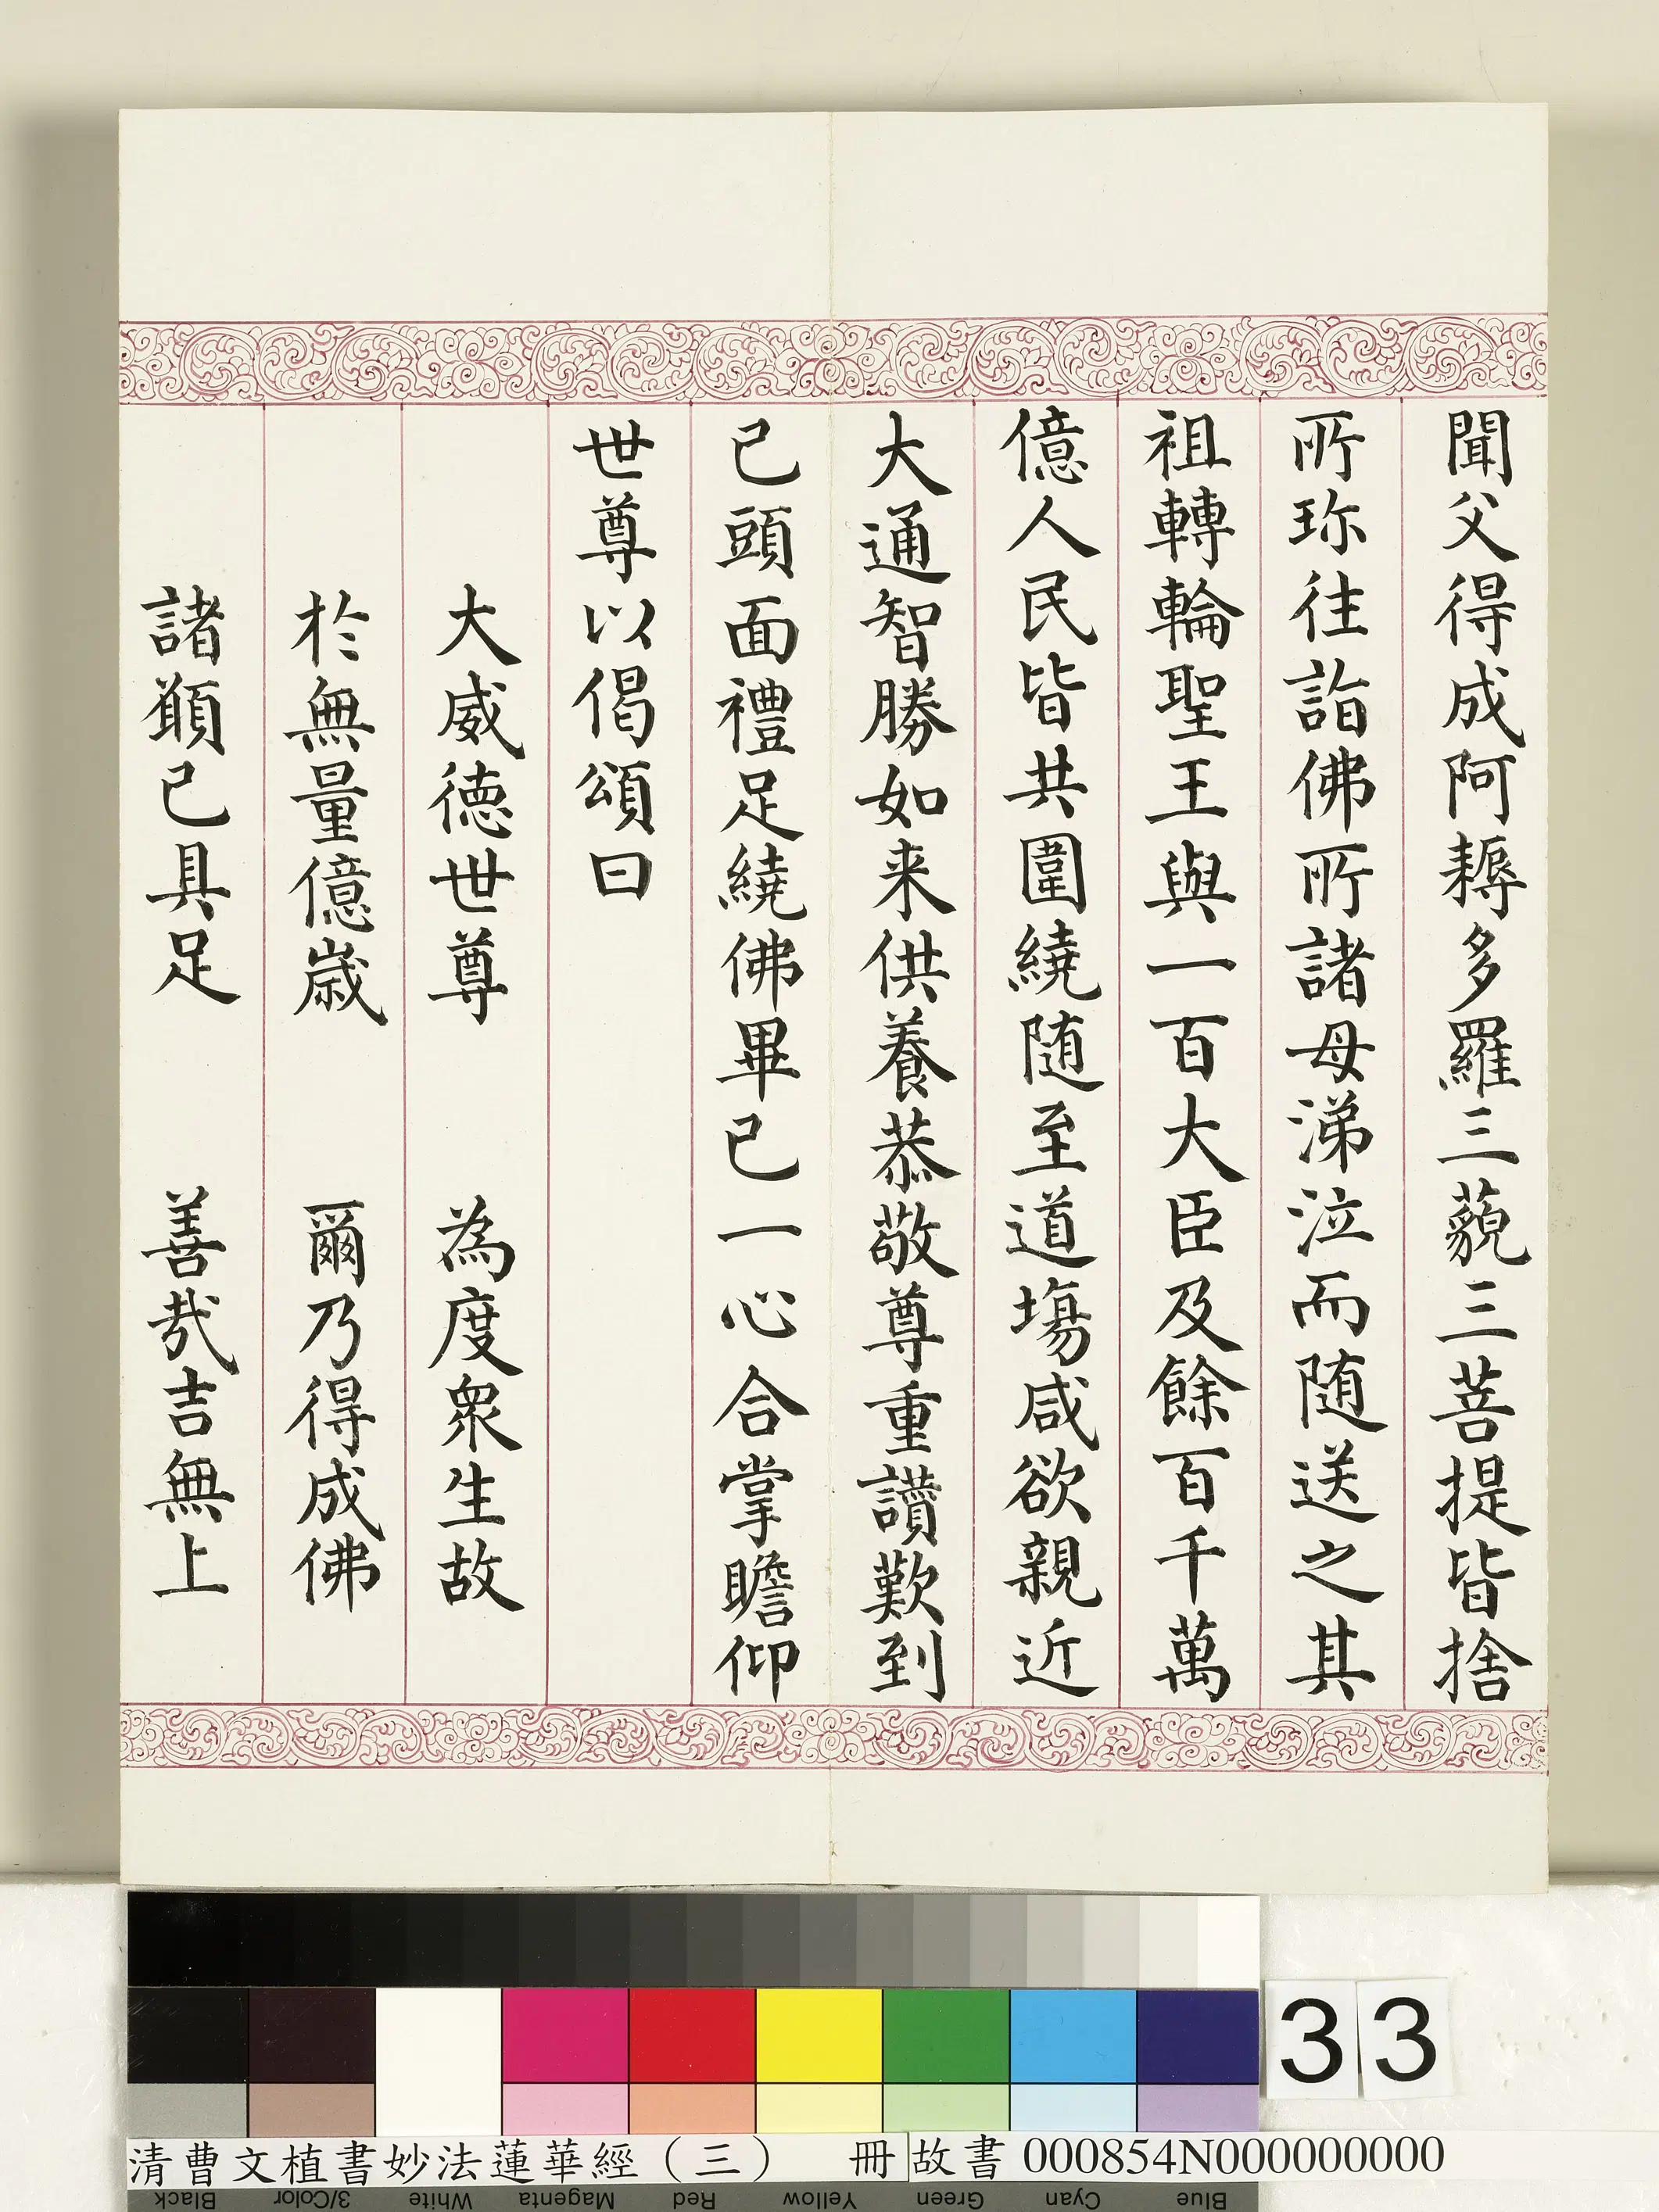 聞父得成阿耨多羅三藐三菩提皆捨
所珎往詣佛所諸母涕泣而随送之其
祖轉輪聖王與一百大臣及餘百千萬
億人民皆共圍繞随至道塲咸欲親近
大通智勝如来供養恭敬尊重讃歎到
已頭面禮足繞佛畢已一心合掌瞻仰
世尊以偈頌曰
大威德世尊　為度衆生故
於無量億歲　爾乃得成佛
諸願已具足　善哉吉無上
33
清曹文植書妙法蓮華經（三）　冊 故書 000854N000000000
Black 3/Color White Magenta Red Yellow Green Cyan Blue